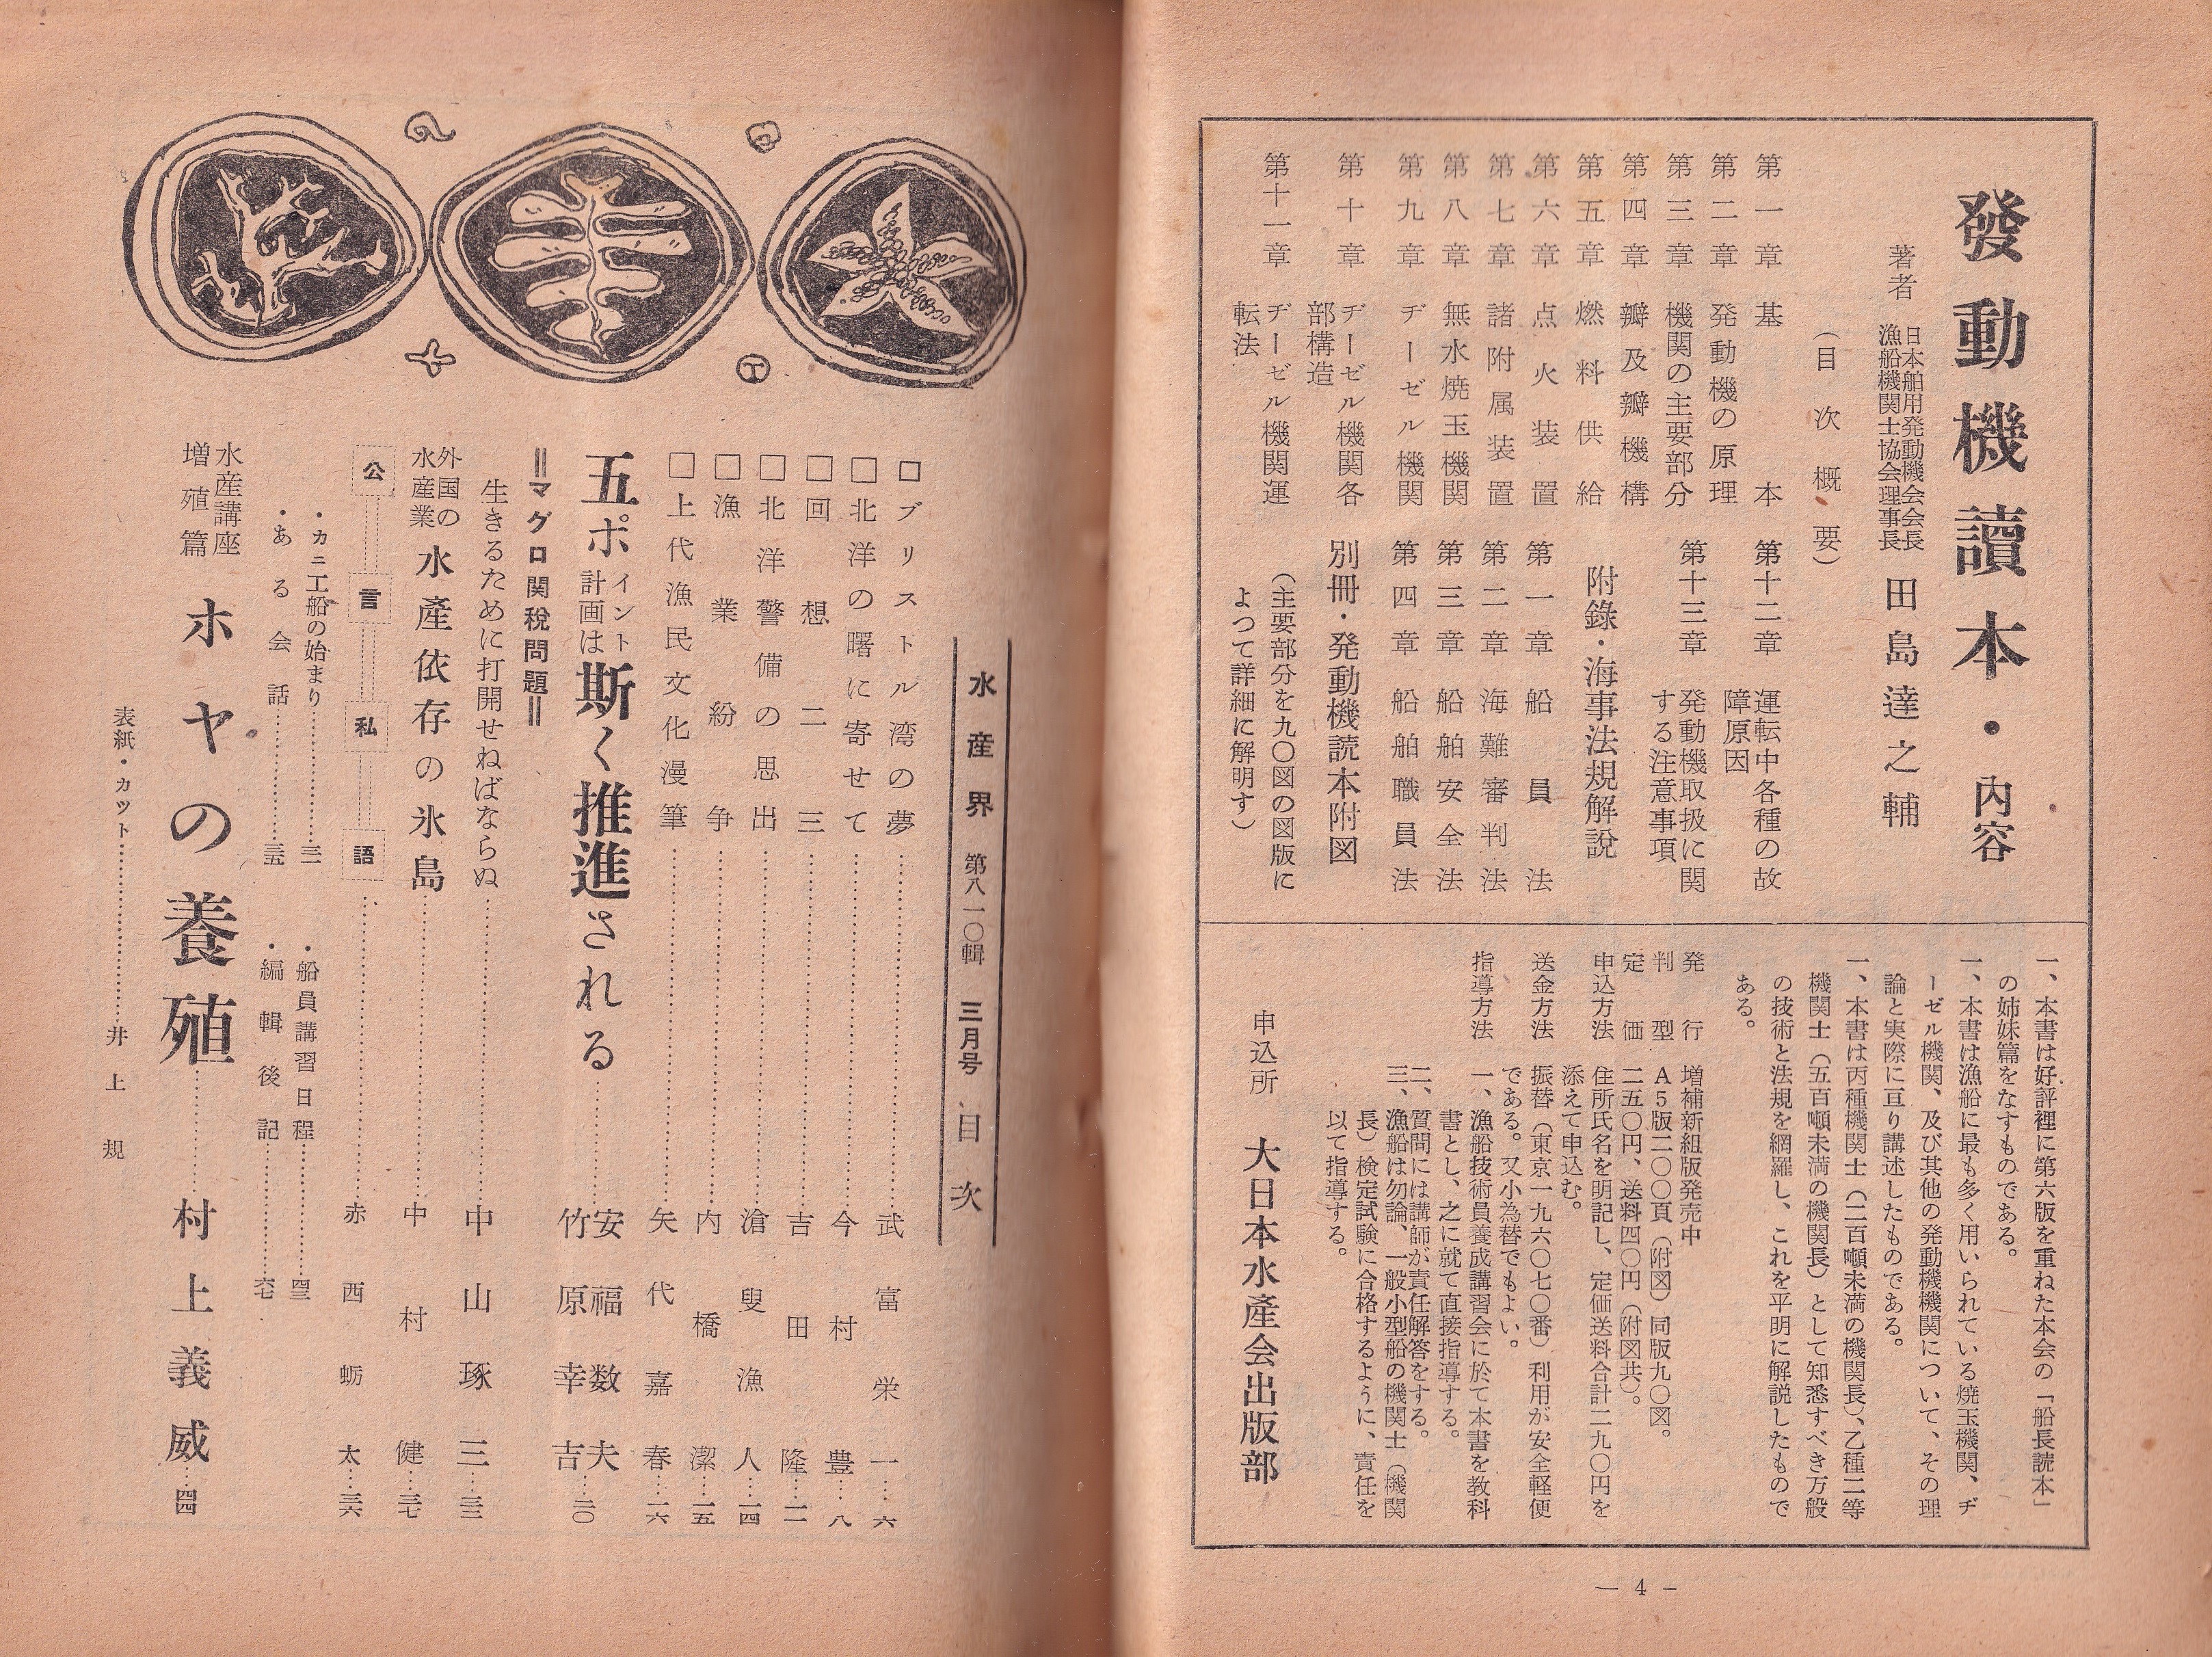 發動機讀本・內容
著者 日本舶用発動機会会長
漁船機関士協会理事長
田島達之輔
（目次概要）
第一章 基本
第二章 発動機の原理
第三章 機関の主要部分
第四章 瓣及瓣機構
第五章 燃料供給
第六章 点火装置
第七章 諸附属装置
第八章 無水焼玉機関
第九章 ヂーゼル機関
第十章 ヂーゼル機関各
部構造
第十一章 ヂーゼル機関運
転法
第十二章 運転中各種の故
障原因
第十三章 発動機取扱に関
する注意事項
附錄・海事法規解説
第一章 船員法
第二章 海難審判法
第三章 船舶安全法
第四章 船舶職員法
別冊・発動機読本附図
（主要部分を九〇図の図版に
よつて詳細に解明す）
一、本書は好評裡に第六版を重ねた本会の「船長読本」
の姉妹篇をなすものである。
一、本書は漁船に最も多く用いられている焼玉機関、ヂ
ーゼル機関、及び其他の発動機機関について、その理
論と実際に亘り講述したものである。
一、本書は丙種機関士（二百噸未満の機関長）、乙種二等
機関士（五百噸未満の機関長）として知悉すべき万般
の技術と法規を網羅し、これを平明に解説したもので
ある。
発行 増補新組版発売中
判型 A５版二〇〇頁（附図）同版九〇図。
定価 二五〇円、送料四〇円（附図共）。
申込方法 住所氏名を明記し、定価送料合計二九〇円を
添えて申込む。
送金方法 振替（東京一九六〇七〇番）利用が安全軽便
である。又小為替でもよい。
指導方法 一、漁船技術員養成講習会に於て本書を教科
書とし、之に就て直接指導する。
二、質問には講師が責任解答をする。
三、漁船は勿論、一般小型船の機関士（機関
長）検定試験に合格するように、責任を
以て指導する。
申込所 大日本水産会出版部
— 4 —
水産界 第八一〇輯 三月号 目次
□ブリストル湾の夢………武富栄一…六
□北洋の曙に寄せて………今村豊…八
□回想二三………吉田隆…一一
□北洋警備の思出………滄叟漁人…一四
□漁業紛争………内橋潔…一五
□上代漁民文化漫筆………矢代嘉春…一六
五ポイント計画は斯く推進される………安福数夫
竹原幸吉…二〇
＝マグロ関税問題＝
生きるために打開せねばならぬ………中山琢三…三三
外国の
水産業 水産依存の氷島………中村健…三七
公言私語………赤西蛎太…三六
・カニ工船の始まり………三二
・ある会話………三五
・船員講習日程………四三
・編輯後記………六七
水産講座
増殖篇 ホヤの養殖………村上義威…四四
表紙・カット………井上規